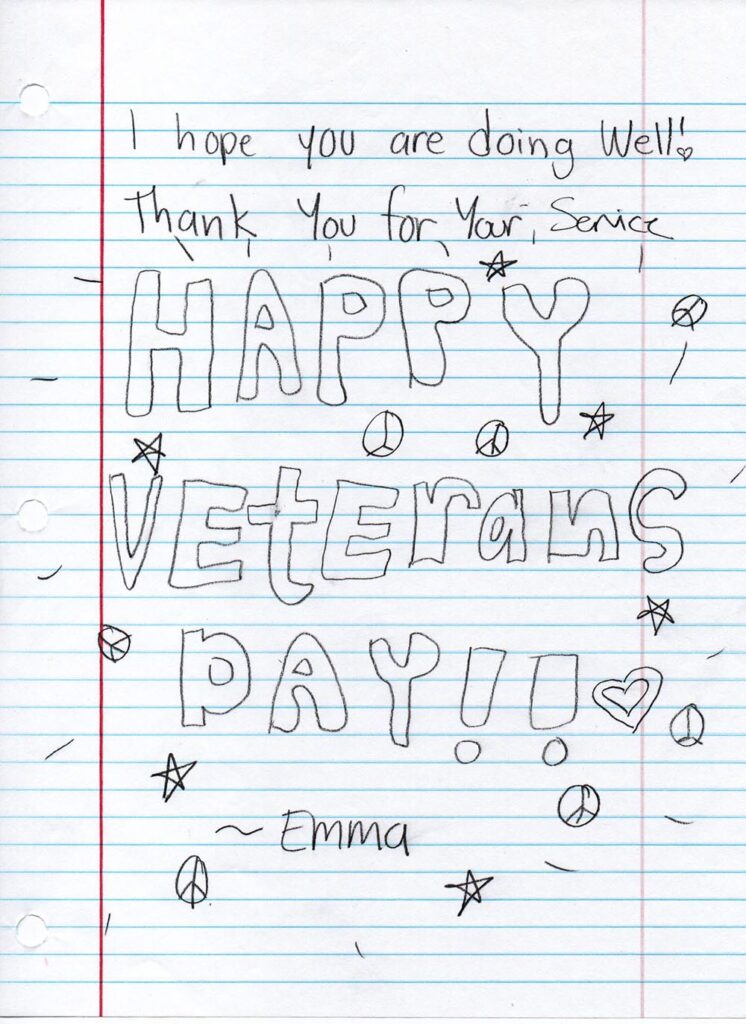 I hope you are doing Well!
Thank You for Your Service
HAPPY
VEtErans
DAY!!
~ Emma